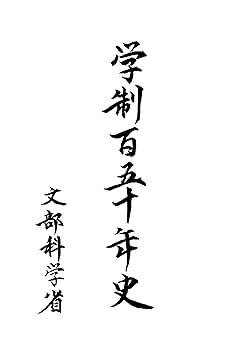 学制百五十年史
文部科学省